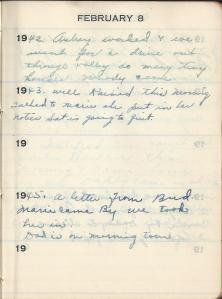 FEBRUARY 8
1942 Aubry worked & we
went for a drive out
through valley so many tiny
houses nobody each
1943. well Rained this morning
talked to marie she put in her
notice Sat is going to quit.
19
1945. a letter from Bud.
Marie came By we took
her in
Dad is on morning tour
19